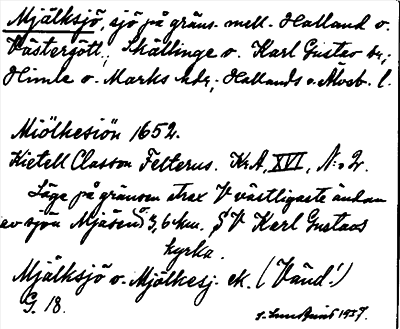 Mjälksjö, sjö på gräns mell. Halland o.
Västergötl.; Skällinge o. Karl Gustav sn;
Himle o. Marks hdr; Hallands o. Älvsb. l.
Miölkesiön 1652.
Kietell Classon Felterus. KrA, XVI, N:o 2.
Läge på gränsen strax V västligaste ändan
av sjön Mjäsen, 3,6 km. SV Karl Gustavs
kyrka.
Mjälksjö o. Mjölkesj. ek. (Vänd!)
G. 18.
1937.